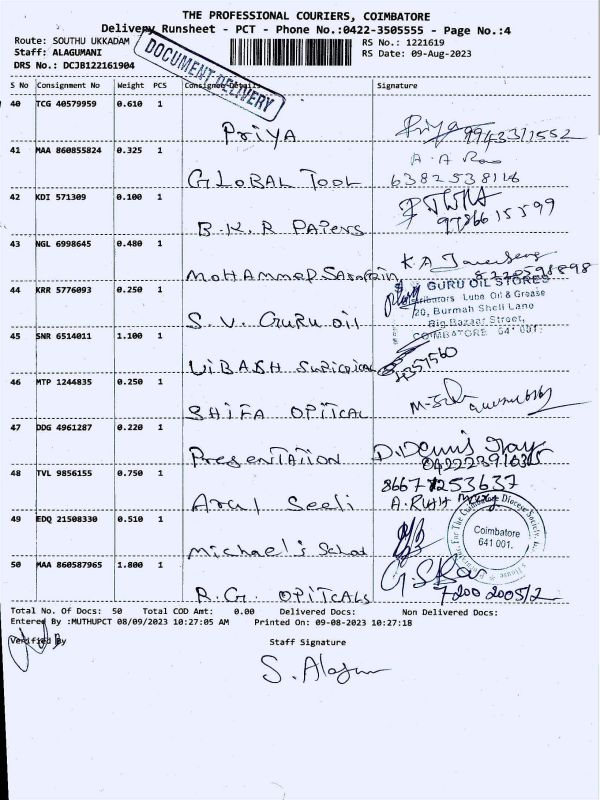 THE PROFESSIONAL COURIERS, COIMBATORE
Delivery Runsheet - PCT - Phone No.:0422-3505555 - Page No.:4
Route: SOUTHU UKKADAM
RS No.: 1221619
Staff: ALAGUMANI
RS Date: 09-Aug-2023
DRS No.: DCJB122161904
DOCUMENT DELIVERY
S No Consignment No Weight PCS Consignee Details Signature
40 TCG 40579959 0.610 1
PRIYA Priya 9943371552
41 MAA 860855824 0.325 1 A.A Rao
GLOBAL TOOL 6382538116
42 KDI 571309 0.100 1
B.K.R PAPERS 9786615599
43 NGL 6998645 0.480 1 K.A
MOHAMMED 8220598898
44 KRR 5776093 0.250 1 GURU OIL STORES
Distributors Lube Oil & Grease
20, Burmah Shell Lane
S.V. GURU oil Big Bazaar Street,
45 SNR 6514011 1.100 1 COIMBATORE 641 001.
46 MTP 1244835 0.250 1
SHIFA OPITCAL
47 DDG 4961287 0.220 1
PRESENTATION D.Dennis
48 TVL 9856155 0.750 1 8667253637
Arul Seeli
49 EDQ 21508330 0.510 1 Coimbatore
641 001.
Michael's
50 MAA 860587965 1.800 1
R.G. OPITCALS
Total No. Of Docs: 50 Total COD Amt: 0.00 Delivered Docs: Non Delivered Docs:
Entered By :MUTHUPCT 08/09/2023 10:27:05 AM Printed On: 09-08-2023 10:27:18
Verified By Staff Signature
S. Alagu